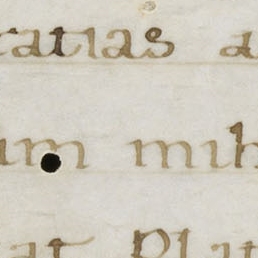 ratias a
um mih
at Plat